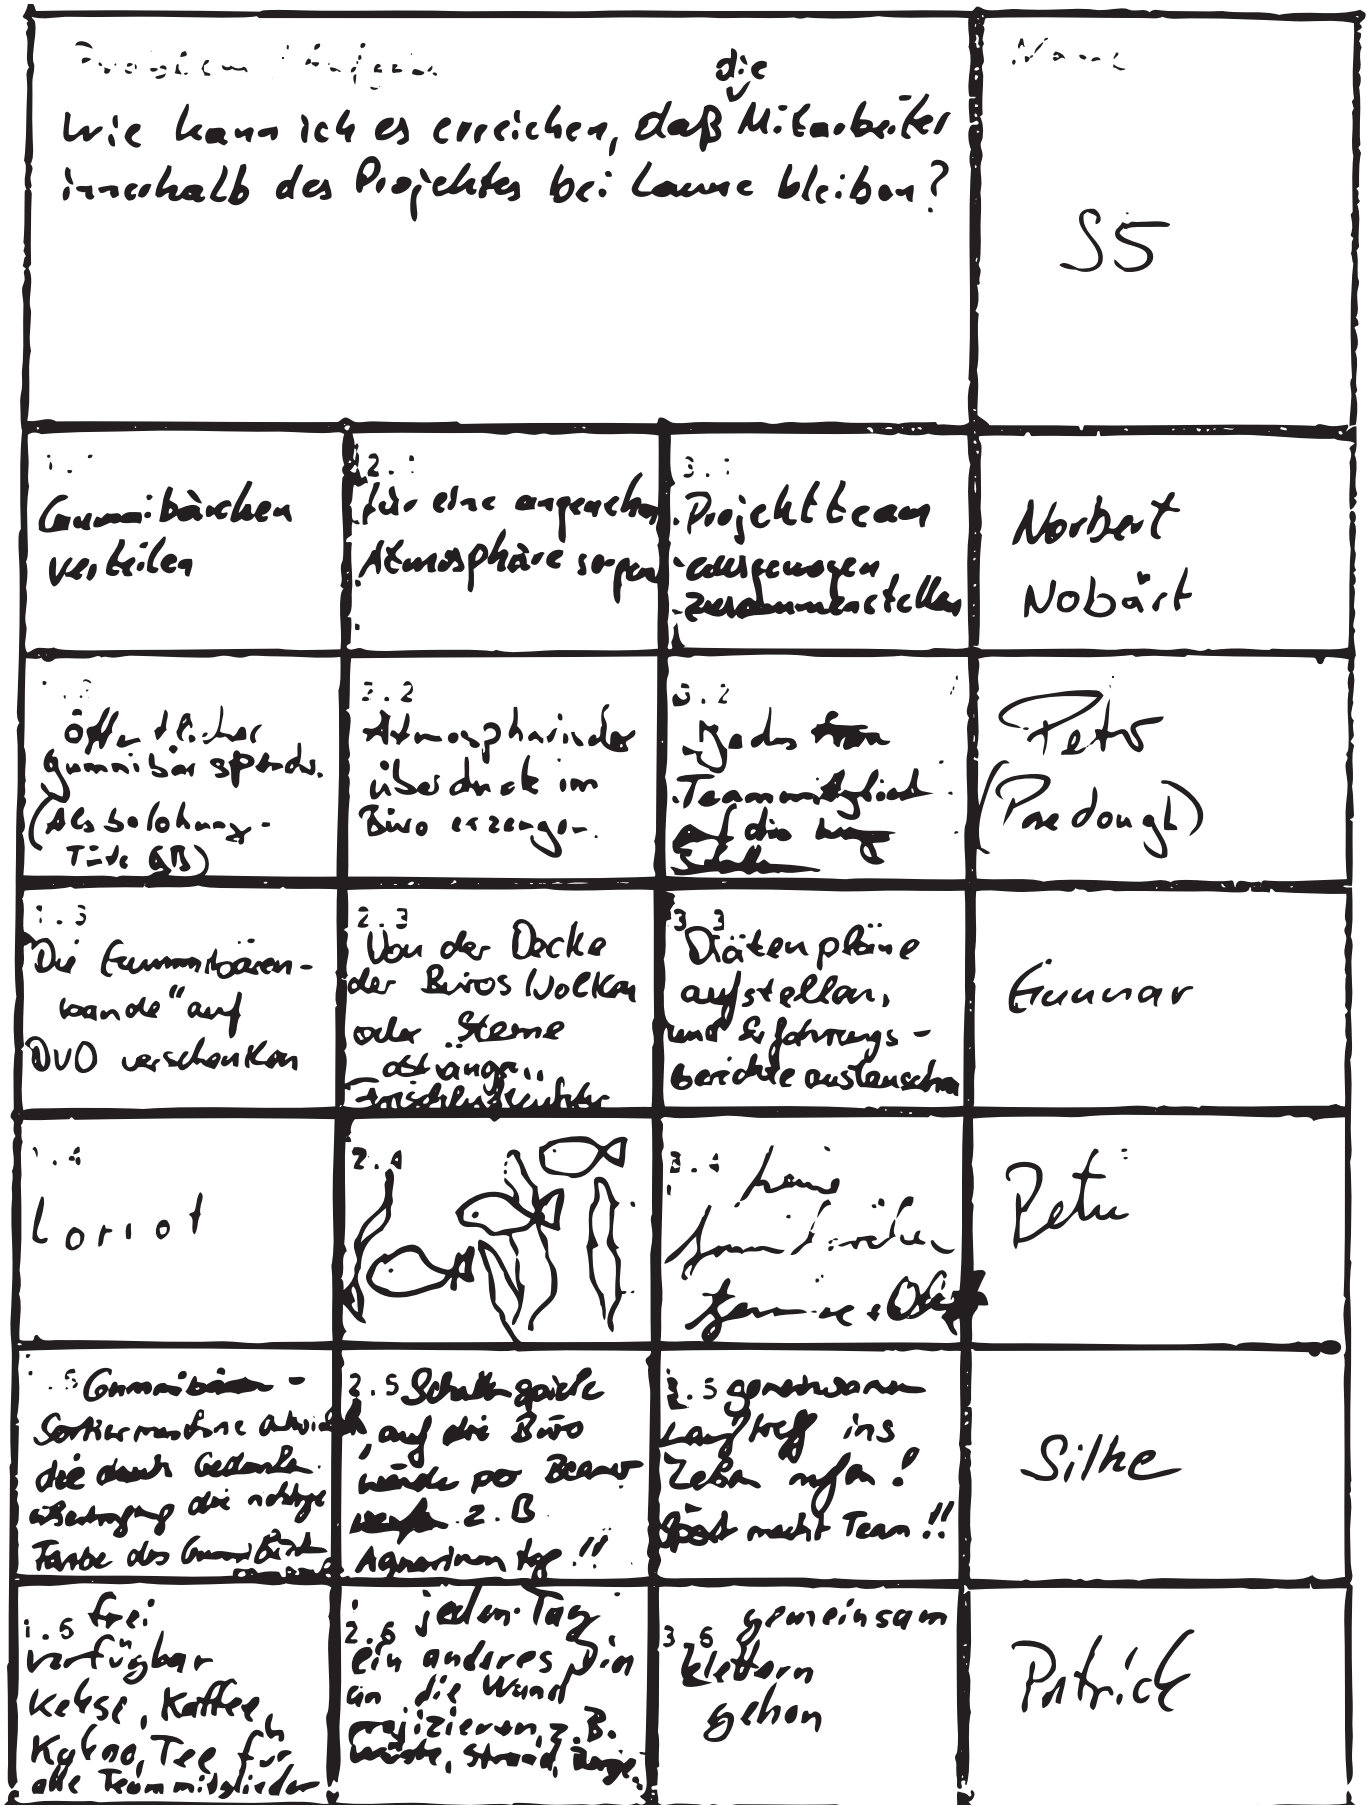 die
Wie kann ich es erreichen, daß Mitarbeiter
innerhalb des Projektes bei Laune bleiben?
S5
Gummibärchen
verteilen
2.1
für eine angenehm
Atmosphäre sorgen
3.1
Projektteam
ausgewogen
zusammenstellen
Norbert
Nobärt
Gummibärspender.
(Als Belohnung-
Tüte GB)
2.2
Atmosphärischer
überdruck im
Büro erzeugen.
3.2
Jedes
Teammitglied
auf die
Peter
1.3
Die Gummibären-
bande" auf
DVD verschenken
2.3
Von der Decke
der Büros Wolken
oder Sterne
abhängen..
3.3
Diätenpläne
aufstellen,
und Erfahrungs-
berichte austauschen
Gunnar
1.4
Loriot
2.4
3.4
keine
Petu
Sortiermaschine
die durch Gedanken
übertragung die richtige
Farbe des Gummibär
2.5 Schattenspiele
auf die Büro
wände per Beamer
z.B
Aquarium tag!!
3.5 gemeinsamen
Lauftreff ins
Leben rufen!
Sport macht Team!!
Silke
1.6 frei
verfügbar
Kekse, Kaffee,
Kakao, Tee für
alle Teammitglieder
2.6 jeden Tag
ein anderes Dia
an die Wand
projizieren, z.B.
Wüste, Strand, Berge.
3.6 gemeinsam
klettern
gehen
Patrick